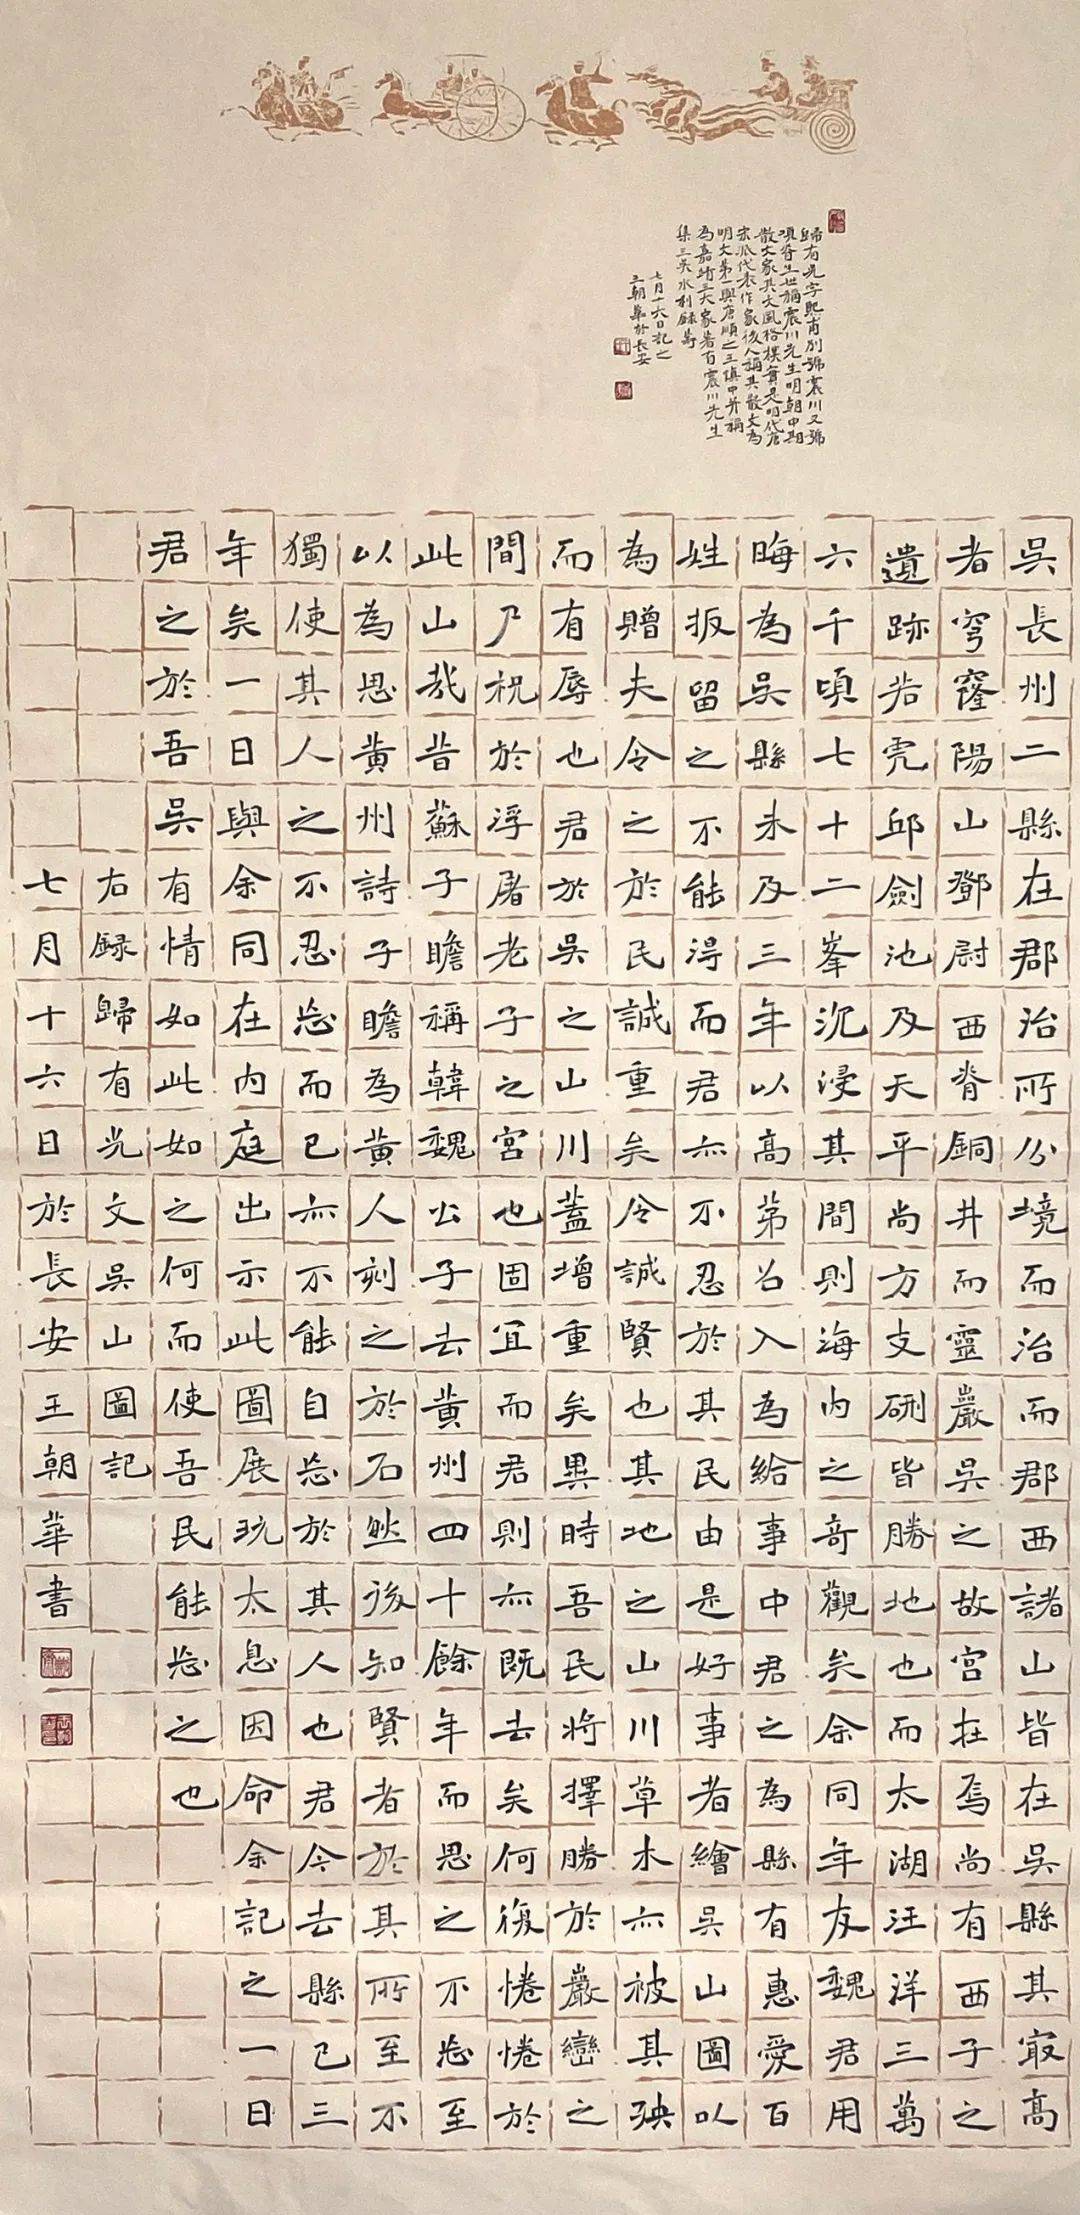 歸有光字熙甫別號震川又號
項脊生世稱震川先生明朝中期
散文家其文風格樸實是明代唐
宋派代表作家後人稱其散文為
明文第一與唐順之王慎中并稱
為嘉靖三大家著有震川先生
集三吳水利録等
七月十六日記之
王朝華於長安
吳長州二縣在郡治所分境而治而郡西諸山皆在吳縣其冣高
者穹窿陽山鄧尉西脊銅井而靈巖吳之故宮在焉尚有西子之
遺跡若虎邱劍池及天平尚方支硎皆勝地也而太湖汪洋三萬
六千頃七十二峯沉浸其間則海內之奇觀矣余同年友魏君用
晦為吳縣未及三年以高第召入為給事中君之為縣有惠愛百
姓扳留之不能得而君亦不忍於其民由是好事者繪吳山圖以
為贈夫令之於民誠重矣令誠賢也其地之山川草木亦被其殃
而有辱也君於吳之山川蓋增重矣異時吾民將擇勝於巖巒之
間乃祝於浮屠老子之宮也固宜而君則亦既去矣何復惓惓於
此山哉昔蘇子瞻稱韓魏公子去黃州四十餘年而思之不忘至
以為思黃州詩子瞻為黃人刻之於石然後知賢者於其所至不
獨使其人之不忍忘而已亦不能自忘於其人也君今去縣已三
年矣一日與余同在內庭出示此圖展玩太息因命余記之一日
君之於吾吳有情如此如之何而使吾民能忘之也
右録歸有光文吳山圖記
七月十六日於長安王朝華書